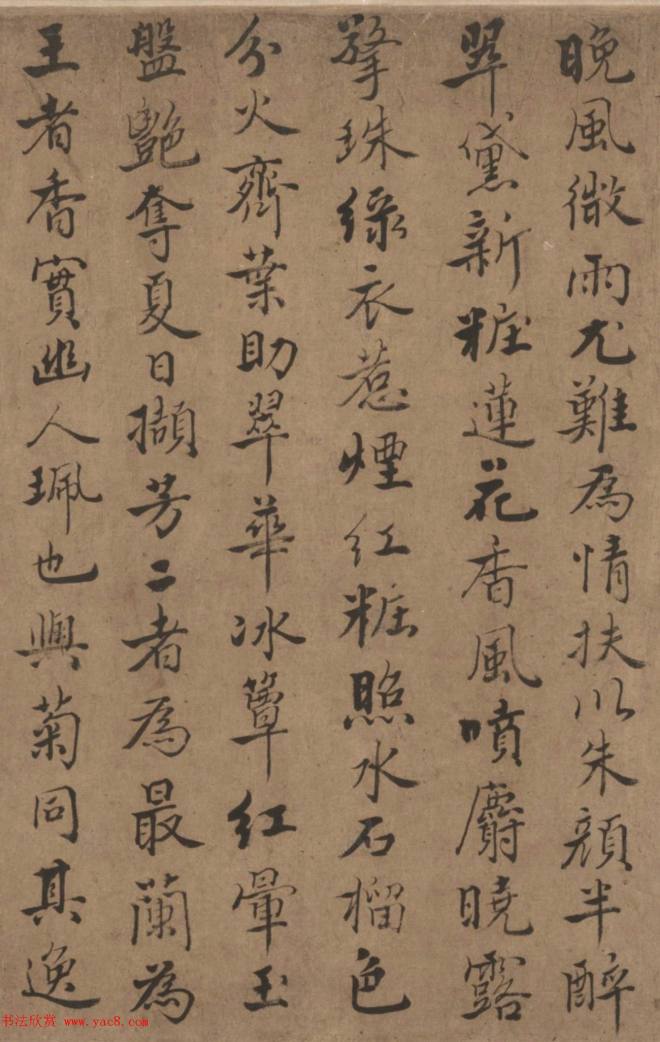 晚風微雨尤難為情扶以朱顏半醉
翠黛新粧蓮花香風噴麝曉露
擎珠綠衣惹煙紅粧照水石榴色
分火齊葉助翠華冰簟紅暈玉
盤艷奪夏日擷芳二者為最蘭為
王者香實幽人珮也與菊同其逸
书法欣赏 www.yac8.com